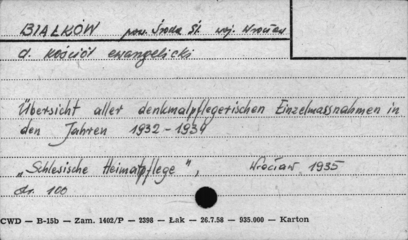 BIAŁKÓW pow. Środa Śl. woj. Wrocław
d. kościół ewangelicki
Übersicht aller denkmalpflegerischen Einzelmassnahmen in
den Jahren 1932 - 1934
„Schlesische Heimatpflege", Wrocław 1935
str. 100
CWD — B-15b — Zam. 1402/P — 2398 — Łak — 26.7.58 — 935.000 — Karton